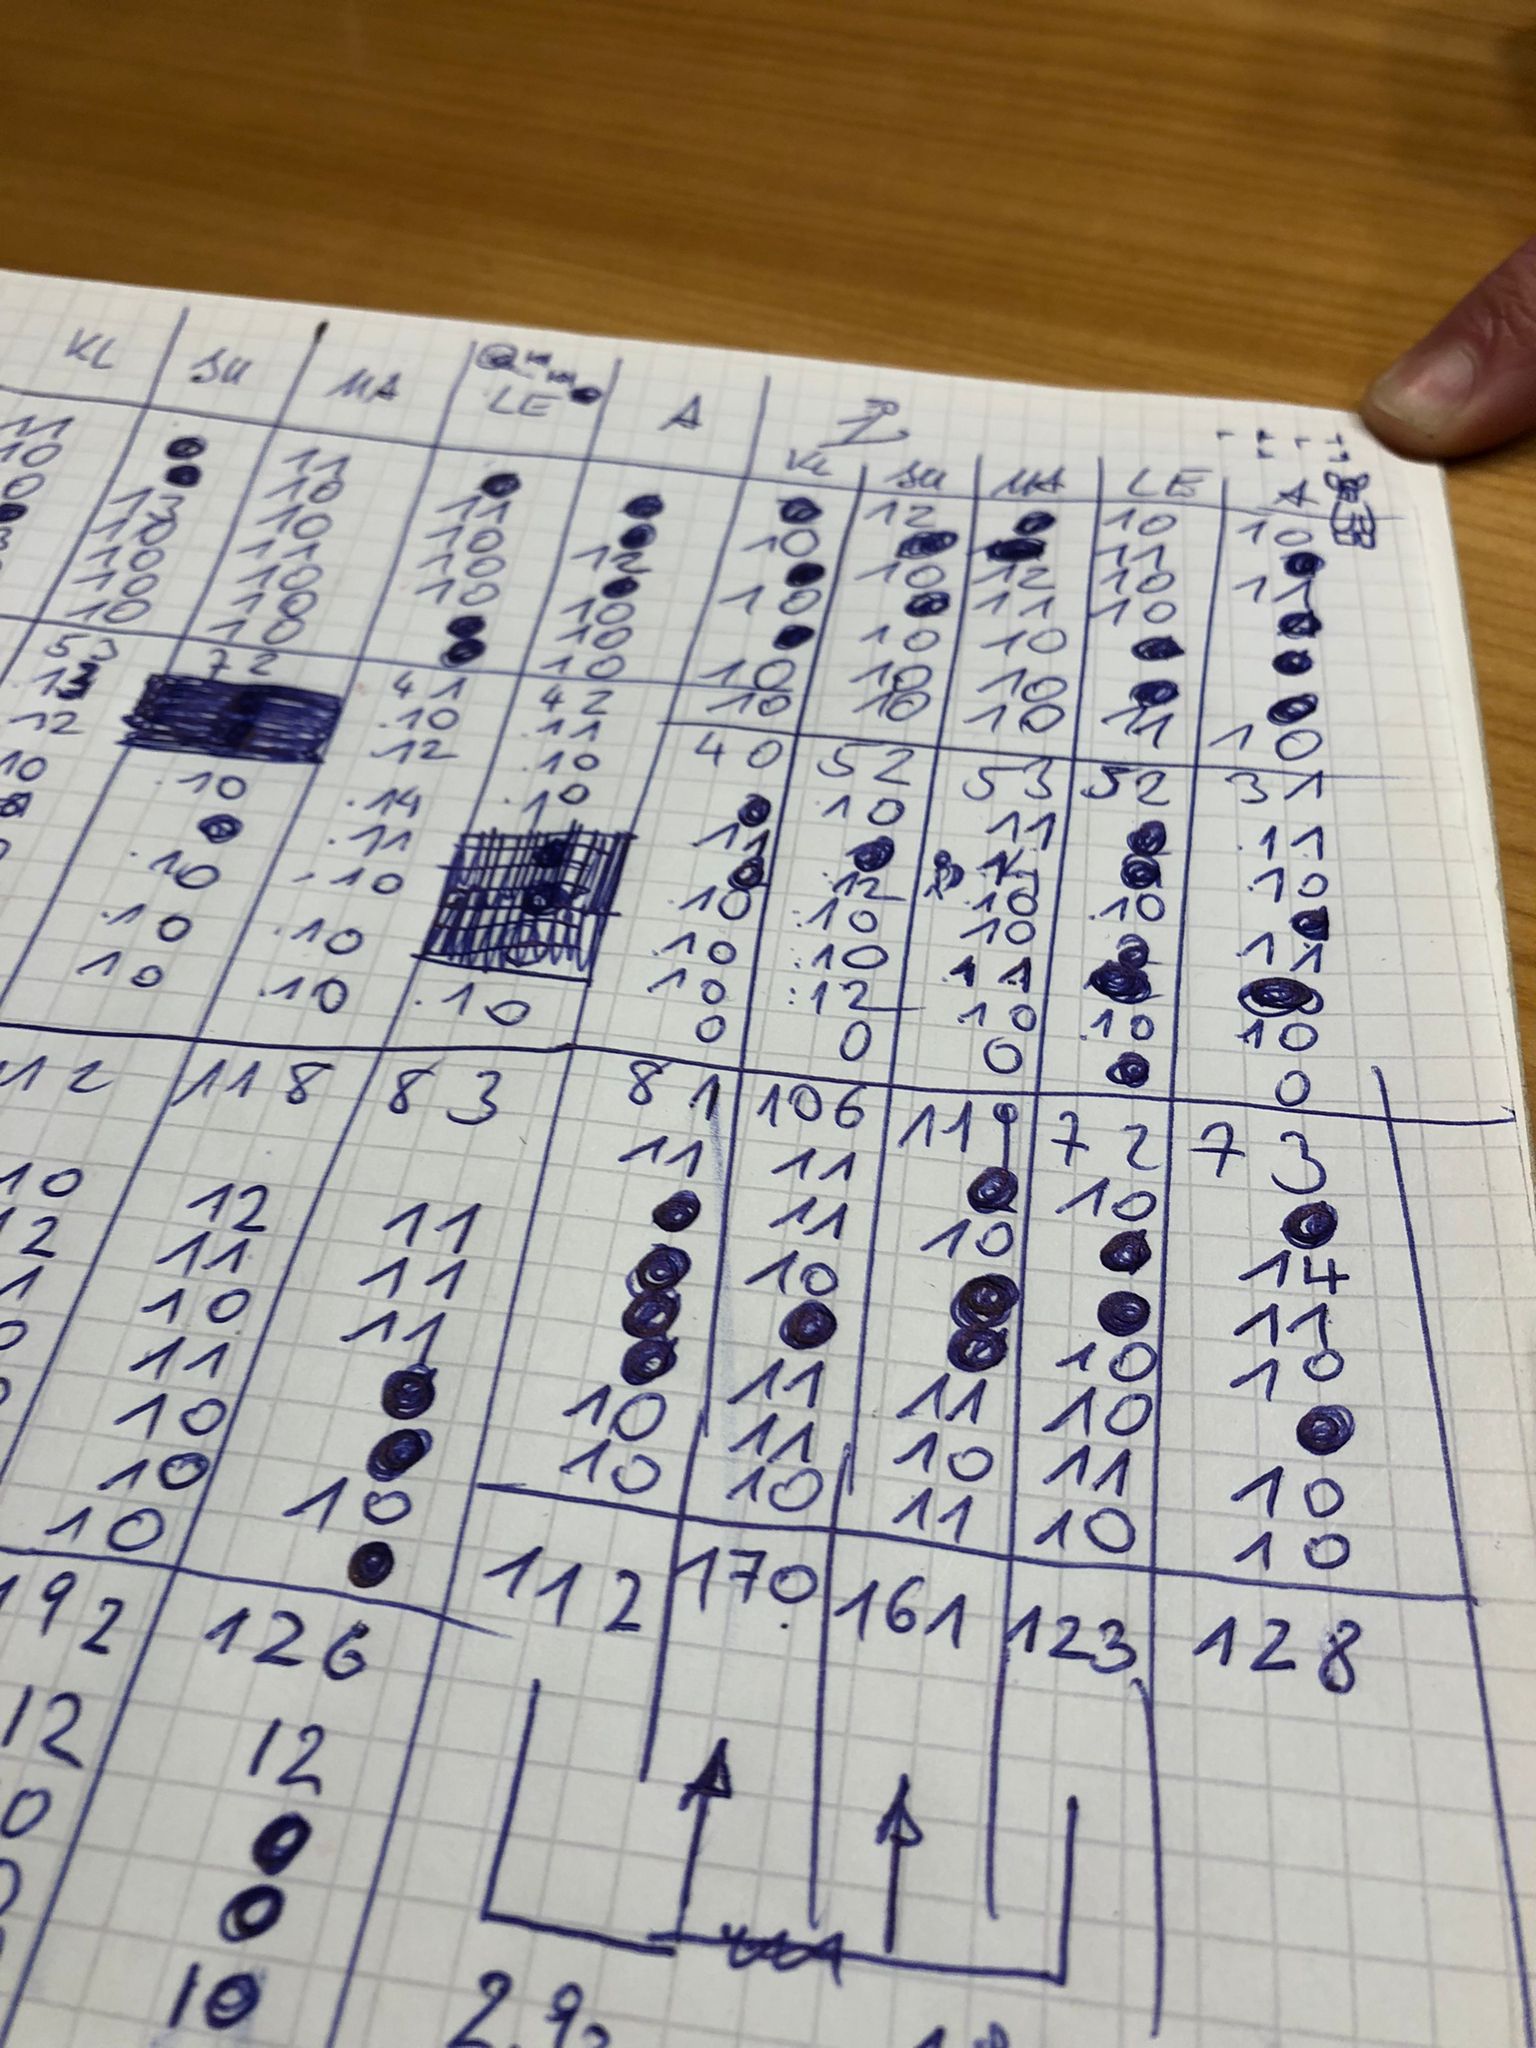 KL SU MA LE A
KL SU MA LE A
11 11 12 10 10
10 13 10 11 10 12 11
10 10 10 12 10 10 12 10 11
10 11 10 10 10 11 10
10 10 10 10 10 10
10 10 10 10 10 10 10
53 72 10 10 10 11 10
13 41 42 40 52 53 52 31
12 10 11 10 11 11
10 12 10 11 10
10 14 10 12 10 10
10 11 10 10 10 11
10 10 10 10 11
10 10 10 12 10 10 10
10 10 10 0 0 0 0
112 118 83 81 106 119 72 73
11 11 10
10 12 11 11 10 14
12 11 11 10 11
10 11 10 10
11 10 11 11 10
10 10 11 10 11 10
10 10 10 10 11 10 10
192 126 112 170 161 123 128
12 12
10